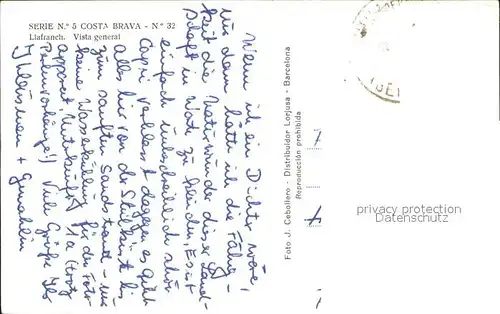 SERIE N.º 5 COSTA BRAVA - N.º 32
Llafranch. Vista general
Wenn ich ein Dichter wäre,
nur dann hätte ich die Fähig-
keit die Naturwunder dieser Land-
schaft in Worte zu kleiden. Es ist
einfach unbeschreiblich schön
Capri verblasst dagegen es gibt
alles hier von der Steilküste bis
zum sanften Sandstrand - nur
keine Wasserkühlung für die
apparent Unterkünfte 1a (trotz
Perlenvorhänge!) Viele Grüße Ihr
+ Gemahlin
Foto J. Cebollero - Distribuidor Lorjusa - Barcelona
Reproducción prohibida
privacy protection